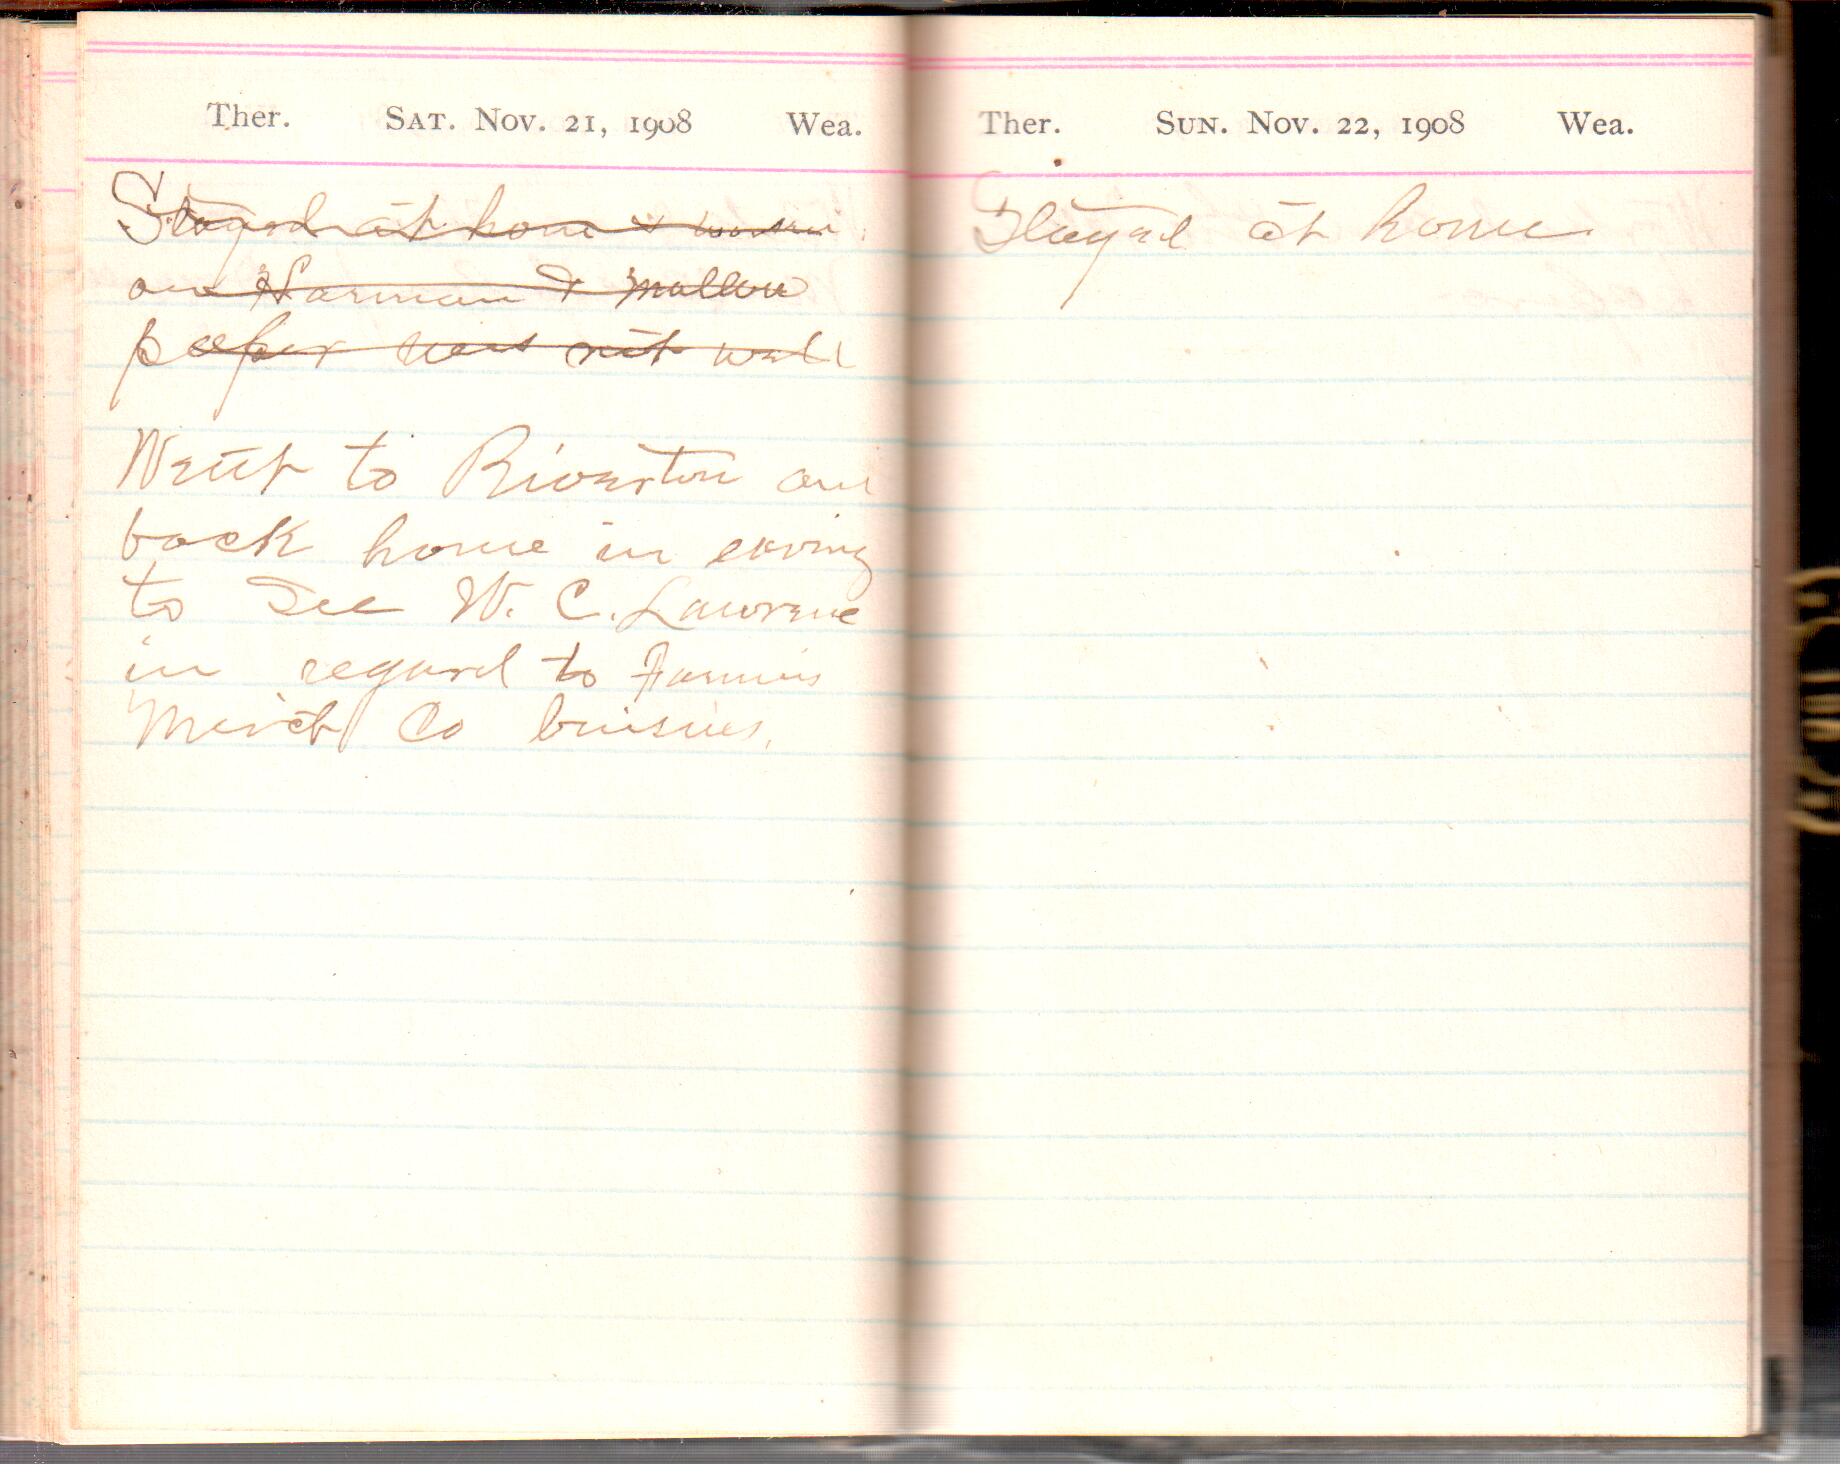 Ther. Sat. Nov. 21, 1908 Wea.
Stayed at home & worked
on Harman &
papers was not well
Went to Riverton and
back home in evning
to see W. C. Lawrence
in regard to Farmers
Merch Co buisnes.
Ther. Sun. Nov. 22, 1908 Wea.
Stayed at home